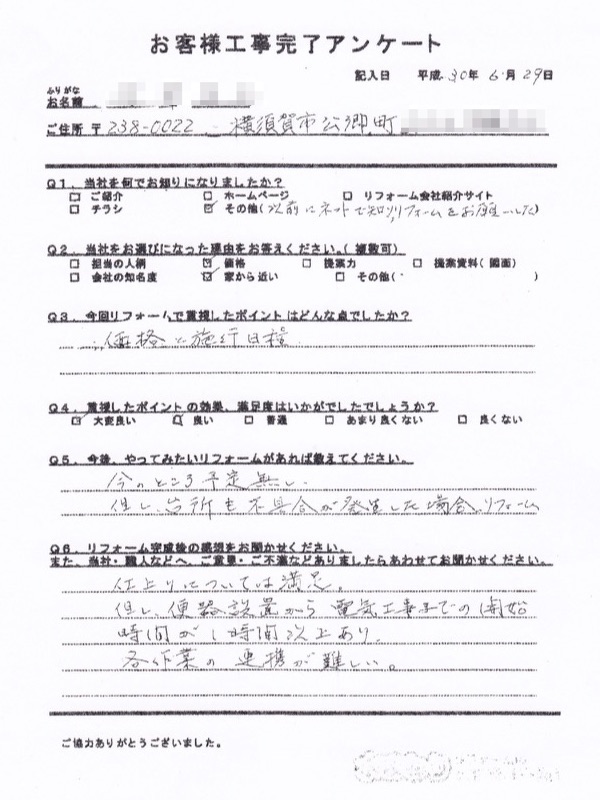 お客様工事完了アンケート
記入日 平成30年6月29日
ふりがな
お名前
ご住所 〒238-0022 横須賀市公郷町
Q1．当社を何でお知りになりましたか？
□ ご紹介 □ ホームページ □ リフォーム会社紹介サイト
□ チラシ ☑ その他(以前にネットで知りリフォームをお願いした)
Q2．当社をお選びになった理由をお答えください。(複数可)
□ 担当の人柄 ☑ 価格 □ 提案力 □ 提案資料(図面)
□ 会社の知名度 ☑ 家から近い □ その他( )
Q3．今回リフォームで重視したポイントはどんな点でしたか？
価格と施行日程
Q4．重視したポイントの効果、満足度はいかがでしたでしょうか？
□ 大変良い ☑ 良い □ 普通 □ あまり良くない □ 良くない
Q5．今後、やってみたいリフォームがあれば教えてください。
今のところ予定無し
但し、台所も不具合が発生した場合、リフォーム
Q6．リフォーム完成後の感想をお聞かせください。
また、当社・職人などへ、ご意見・ご不満などありましたらあわせてお聞かせください。
仕上りについては満足。
但し、便器設置から電気工事までの開始
時間が1時間以上あり、
各作業の連携が難しい。
ご協力ありがとうございました。